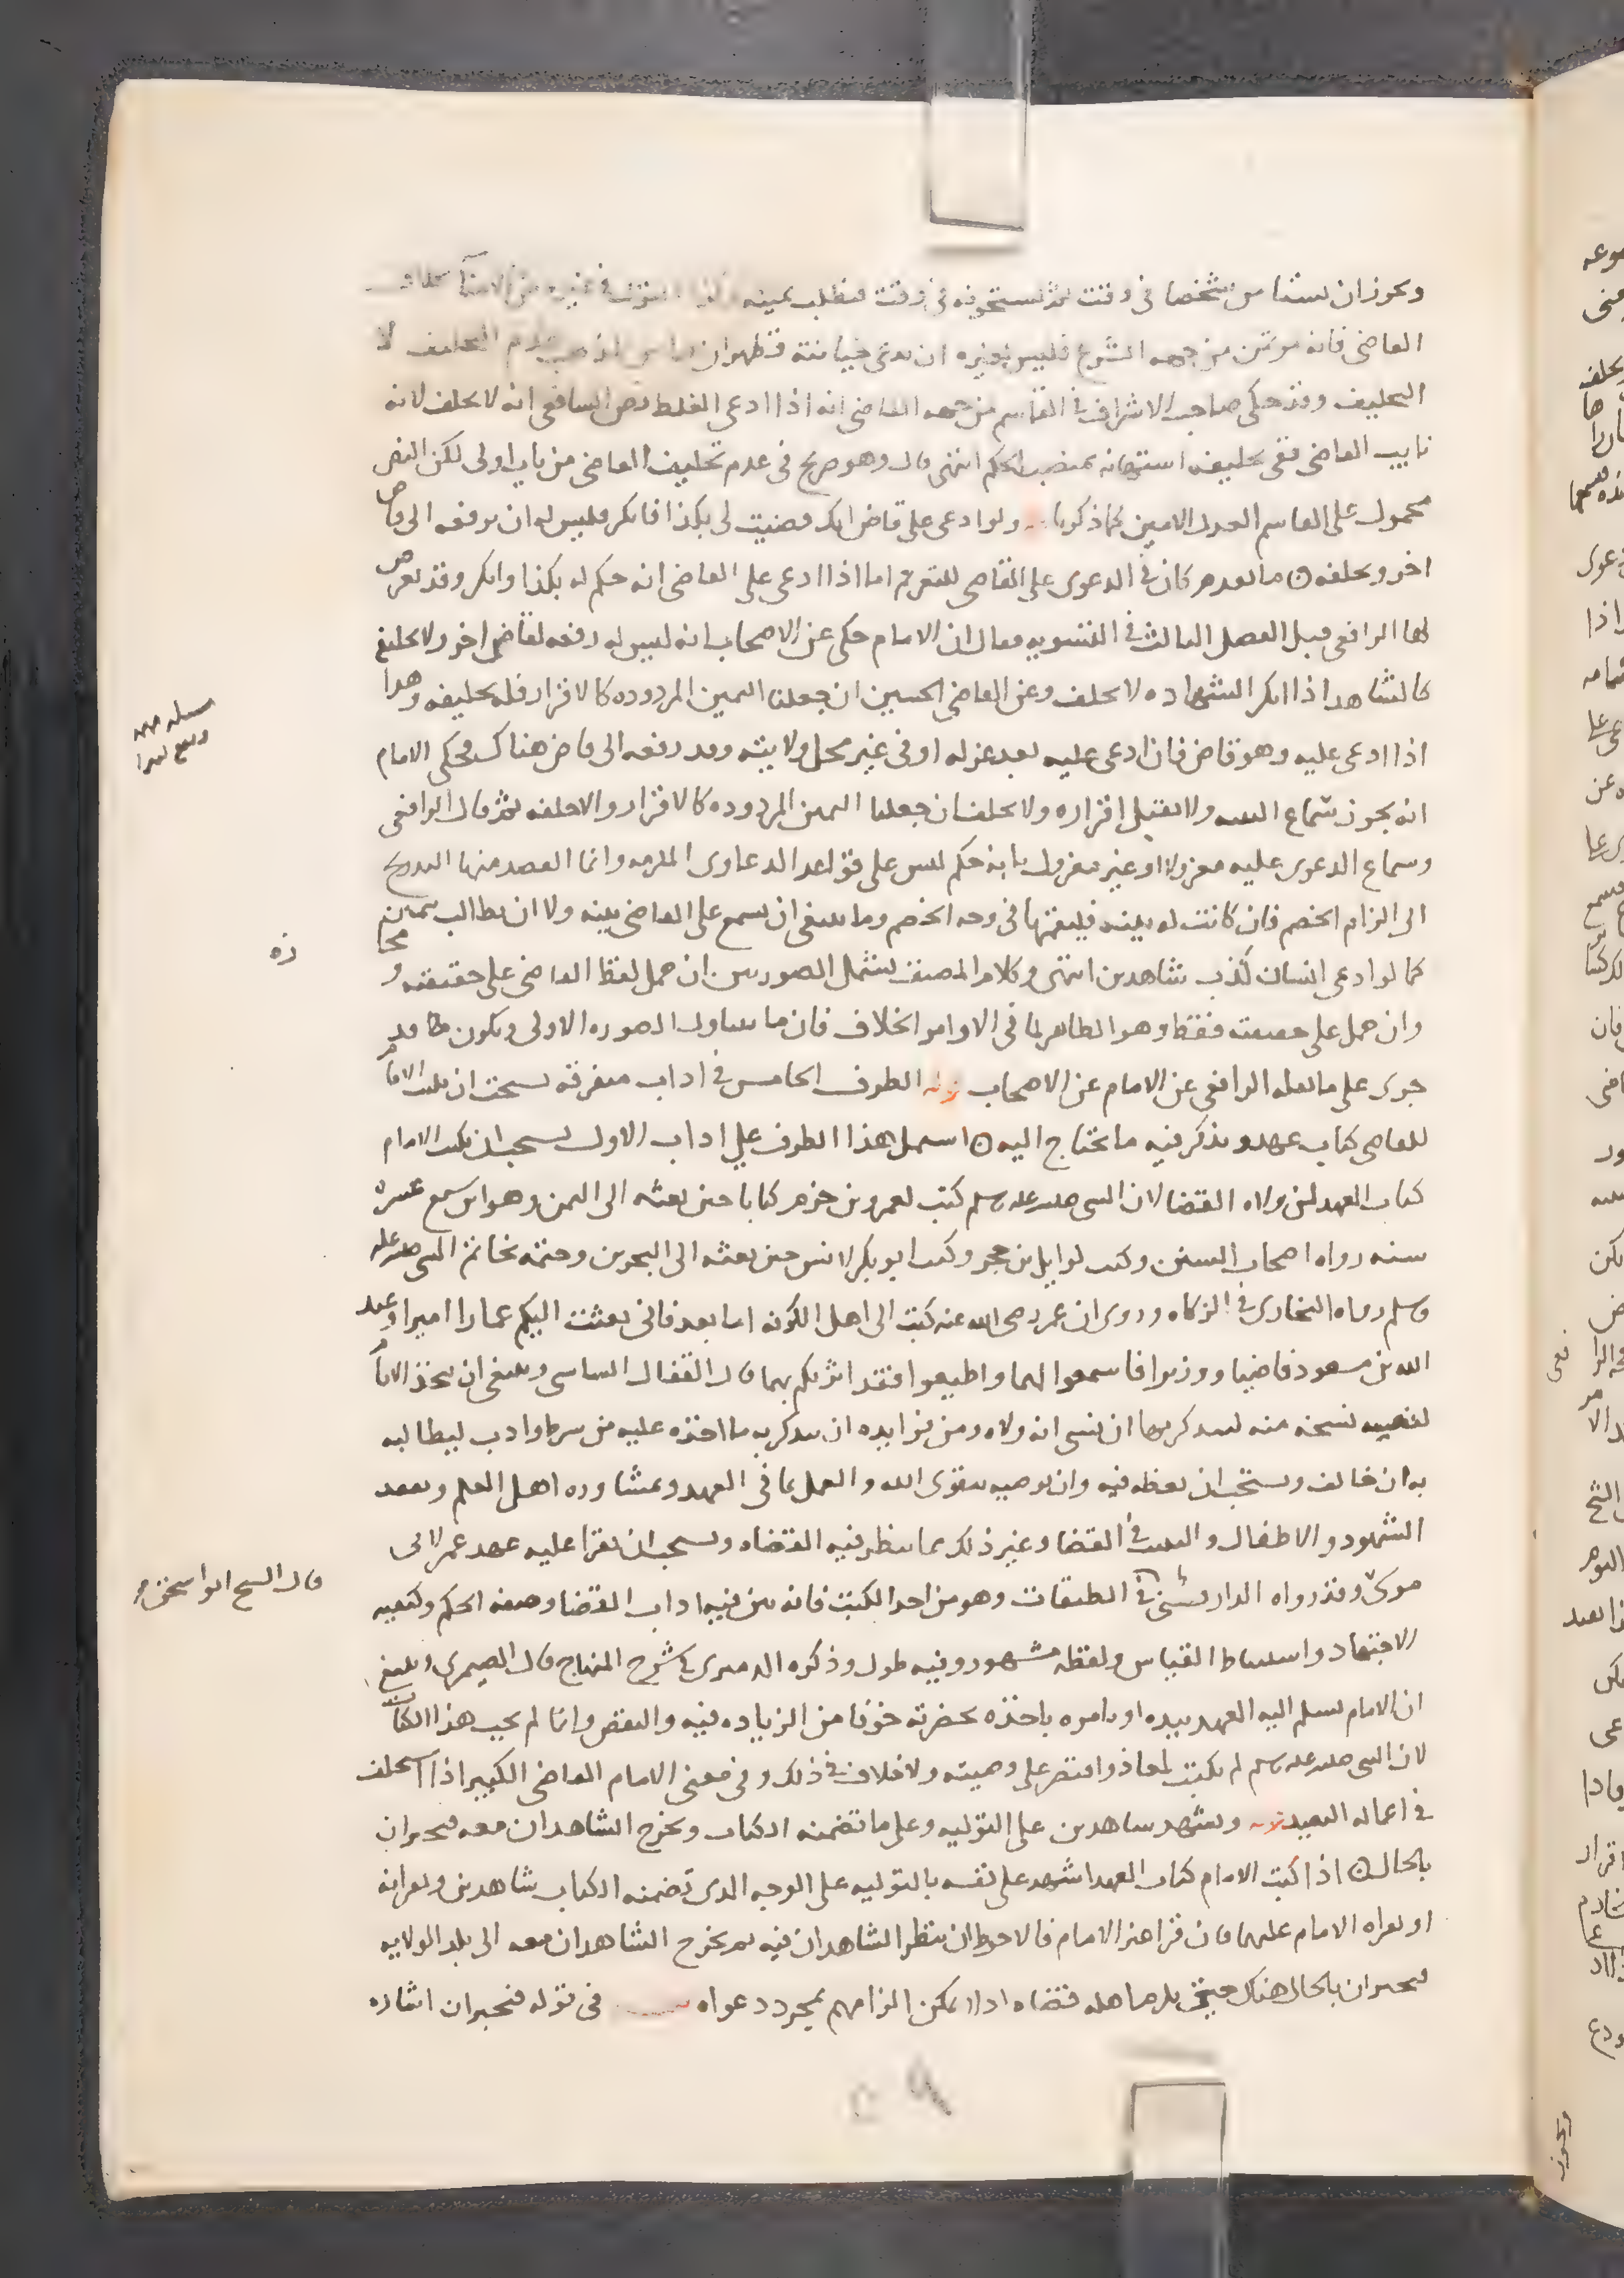 ويجوز ان يستامن شخصا في وقت ثم يستخونه في وقت فيطلب يمينه
القاضي فانه موتمن من جهه الشرع فليس لغيره ان يدعي خيانته فظهر ان المذهب عدم التحليف لا
التحليف وقد حكى صاحب الاشراف في القاسم من جهه القاضي انه اذا ادعى الغلط نص الشافعي انه لا يحلف لانه
نايب القاضي ففي تحليفه استهانه بمنصب الحكم انتهى قال وهو صريح في عدم تحليف القاضي من باب اولى لكن النص
محمول على القاسم العدل الامين كما ذكرنا ولو ادعى على قاض انك قضيت لي بكذا فانكر فليس له ان يرفعه الى قاض
اخر ويحلفه ما تقدم كان في الدعوى على القاضي للتغريم اما اذا ادعى على القاضي انه حكم له بكذا وانكر وقد تعرض
لها الرافعي قبيل الفصل الثالث في التسويه فقال ان الامام حكى عن الاصحاب انه ليس له رفعه لقاض اخر ولا تحليفه
كالشاهد اذا انكر الشهاده لا يحلف وعن القاضي الحسين ان جعلنا اليمين المردوده كالاقرار فله تحليفه وهذا
اذا ادعى عليه وهو قاض فان ادعى عليه بعد عزله او في غير محل ولايته وقد رفعه الى قاض هناك فحكى الامام
انه يجوز سماع البينه ولا يقبل اقراره ولا يحلف ان جعلنا اليمين المردوده كالاقرار والا حلفه ثم قال الرافعي
وسماع الدعوى عليه معزولا او غير معزول بانه حكم ليس على قواعد الدعاوى الملزمه وانما القصد منها التدريج
الى الزام الخصم فان كانت له بينه فليقمها في وجه الخصم وما ينبغي ان يسمع على القاضي بينه ولا ان يطالب بيمين
كما لو ادعى انسان كذب شاهدين انتهى وكلام المصنف يشمل الصورتين ان حمل لفظ القاضي على حقيقته ومجا
زه
وان حمل على حقيقته فقط وهو الظاهر لما في الاوامر الخلاف فان ما يتناول الصوره الاولى ويكون مما قد
جرى على ما نقله الرافعي عن الامام عن الاصحاب الطرف الخامس في اداب متفرقه يستحب ان يكتب الامام
للقاضي كتاب عهد ويذكر فيه ما يحتاج اليه اشتمل هذا الطرف على اداب الاول يستحب ان يكتب الامام
كتاب العهد لمن ولاه القضا لان النبي صلى الله عليه وسلم كتب لعمرو بن حزم كتابا حين بعثه الى اليمن وهو ابن سبع عشره
سنه رواه اصحاب السنن وكتب لوايل بن حجر وكتب ابو بكر لانس حين بعثه الى البحرين وختمه بخاتم النبي صلى الله عليه
وسلم رواه البخاري في الزكاه وروى ان عمر رضي الله عنه كتب الى اهل الكوفه اما بعد فاني بعثت اليكم عمارا اميرا وعبد
الله بن مسعود قاضيا ووزيرا فاسمعوا لهما واطيعوا فقد اثرتكم بهما قال القفال الشاشي وينبغي ان يتخذ الامام
لنفسه نسخه منه ليتذكر بها ان نسي انه ولاه ومن فوايده ان يتذكر به ما اخذه عليه من شرط وادب ليطالبه
به ان خالف ويستحب ان يعظه فيه وان يوصيه بتقوى الله والعمل بما في العهد ومشاوره اهل العلم وتفقد
الشهود والاطفال والتثبت في القضا وغير ذلك مما ينظر فيه القضاه ويستحب ان يقرا عليه عهد عمر لابي
موسى وقد رواه الدارقطني في الطبقات وهو من احد الكتب فانه بين فيه اداب القضا وصفه الحكم وكيفيه
قال الشيخ ابو اسحق
الاجتهاد واستنباط القياس ولفظه مشهور وفيه طول وذكره الدميري في شرح المنهاج قال الصيمري وينبغي
ان الامام يسلم اليه العهد بيده او يامره باخذه بحضرته خوفا من الزياده فيه والنقص وانما لم يجب هذا الكتاب
لان النبي صلى الله عليه وسلم لم يكتب لمعاذ واقتصر على وصيته ولا خلاف في ذلك وفي معنى الامام القاضي الكبير اذا استخلف
في اعماله البعيده ويشهد شاهدين على التوليه وعلى ما تضمنه الكتاب ويخرج الشاهدان معه فيخبران
بالحال اذا كتب الامام كتاب العهد اشهد على نفسه بالتوليه على الوجه الذي تضمنه الكتاب شاهدين ويقرانه
او يقراه الامام عليهما فان قرا هو الامام فالاحوط ان ينظر الشاهدان فيه ثم يخرج الشاهدان معه الى بلد الولايه
فيخبران بالحال هناك حتى يلزم اهله قضاه اذ لا يمكن الزامهم بمجرد دعواه في قوله فيخبران اشاره